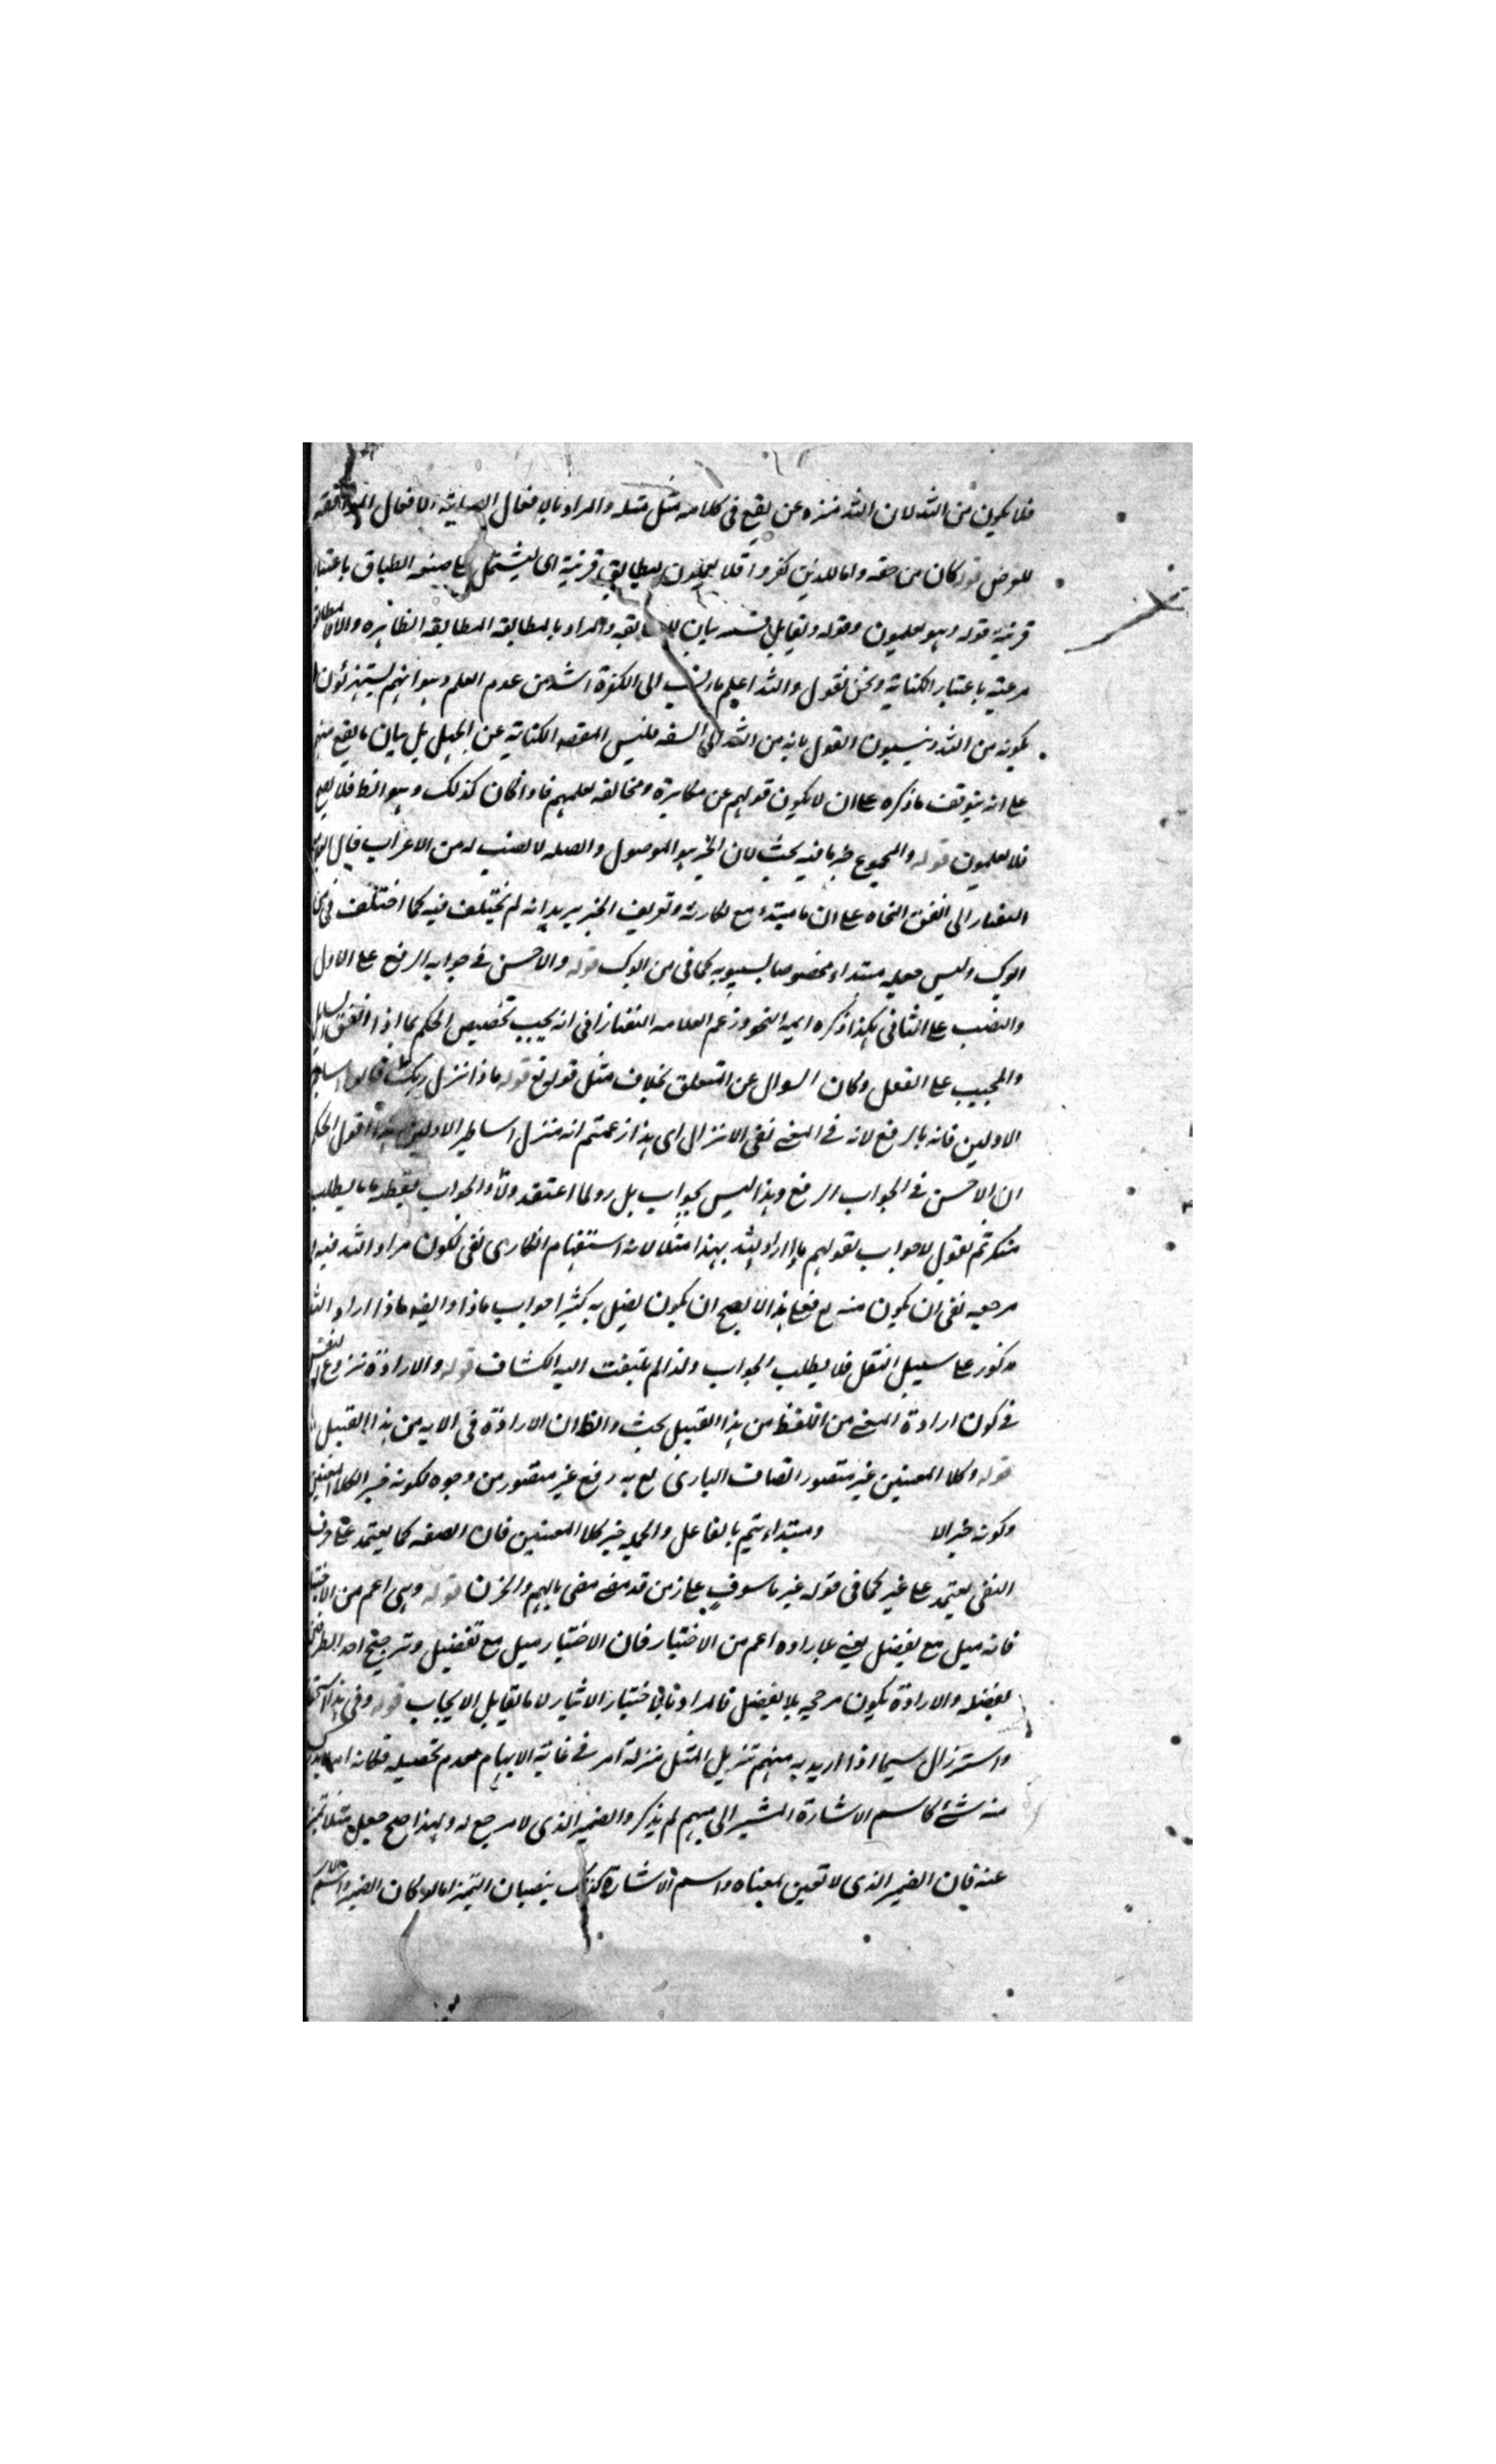 فلا يكون من الله لان الله منزه عن يقع فى كلامه مثل مثله والمراد بالافعال الافعال
للعوض قوله كان من حقه واما الذين كفروا فلا يعلمون ليطابق قرينه اى ليشتمل على صنعه الطباق باعتبار
قرينة قوله وهو لعلمون وقوله ويقابل قسمه بيان والمراد بالمطابقه المطابقه الظاهره والا فالمطابقة
مرعية باعتبار الكناية ونحن نقول والله اعلم الى الكفرة اشد من عدم العلم وهو انهم يستهزئون
بكونه من الله وينسبون القول بانه من الله الى السفه فليس المقصد الكناية عن الجهل بل بيان ما يقع منهم
على انه يتوقف ما ذكره على ان لا يكون قولهم عن مكابرة ومخالفه لعلمهم فاذا كان كذلك وهو الظ فلا يصح
فلا يعلمون قوله والمجموع خبر ما فيه بحث لان الخبر هو الموصول والصله لا نصيب له من الاعراب قال
اتفق النحاه على ان ما مبتدا مع نكارته وتعريف الخبر يريد انه لم يختلف فيه كما اختلف فى
ابوك وليس جعله مبتداء مخصوصا بسيبويه كما فى من ابوك قوله والاحسن فى جوابه الرفع على الاول
والنصب على الثانى هكذا ذكره ايمة النحو وزعم العلامه التفتازانى انه يجب تخصيص الحكم بما اذا اتفق السايل
والمجيب على الفعل وكان السوال عن المتعلق بخلاف مثل قوله تع قوله ماذا انزل ربكم قالوا اساطير
الاولين فانه بالرفع لانه فى المعنى نفى الانزال اى هذا زعمتم انه منزل اساطير الاولين هذا اقول الحكم
ان الاحسن فى الجواب الرفع وهذا ليس بجواب بل رد لما اعتقد
ثم نقول لا جواب لقولهم ماذا اراد الله بهذا مثلا لانه استفهام انكارى نفى لكون مراد الله فيه
مرجعه نفى ان يكون منه تع فعلى هذا لا يصح ان يكون يضل به كثيرا جواب ماذا وايضه ماذا اراد الله
مذكور على سبيل النقل فلا يطلب الجواب ولذا لم يلتفت اليه الكشاف قوله والارادة نزوع النفس
فى كون ارادة المعنى من اللفظ من هذا القبيل بحث والظ ان الارادة فى الايه من هذا القبيل
قوله وكلا المعنيين غير متصور اتصاف البارى تع به رفع غير متصور من وجوه لكونه خبر الكلا المعنيين
وكونه خبر الا ومبتداء يتم بالفاعل والجمله خبر كلا المعنيين فان الصفه كما يعتمد على حرف
النفى يعتمد على غير كما فى قوله غير ماسوف على زمن قد مضى بالهم والحزن قوله وهى اعم من الاختيار
فانه ميل مع تفضيل يعنى عباراه اعم من الاختيار فان الاختيار ميل مع تفضيل وترجيح احد الطرفين
بفضله والارادة يكون مرجحه بلا تفضيل فالمراد باختيار الايثار لا ما يقابل الايجاب قوله وفى هذا استحقار
واسترذال سيما اذا اريد به منهم تنزيل المثل منزلة امر فى غاية الابهام لعدم تحصيله فكانه
منه شئ كاسم الاشارة المشير الى مبهم لم يذكر والضمير الذى لا مرجع له ولهذا صح جعل مثلا تميز
عنه فان الضمير الذى لا تعين لمعناه واسم الاشارة كذلك ينصبان التميز اما لو كان الضمير واسم